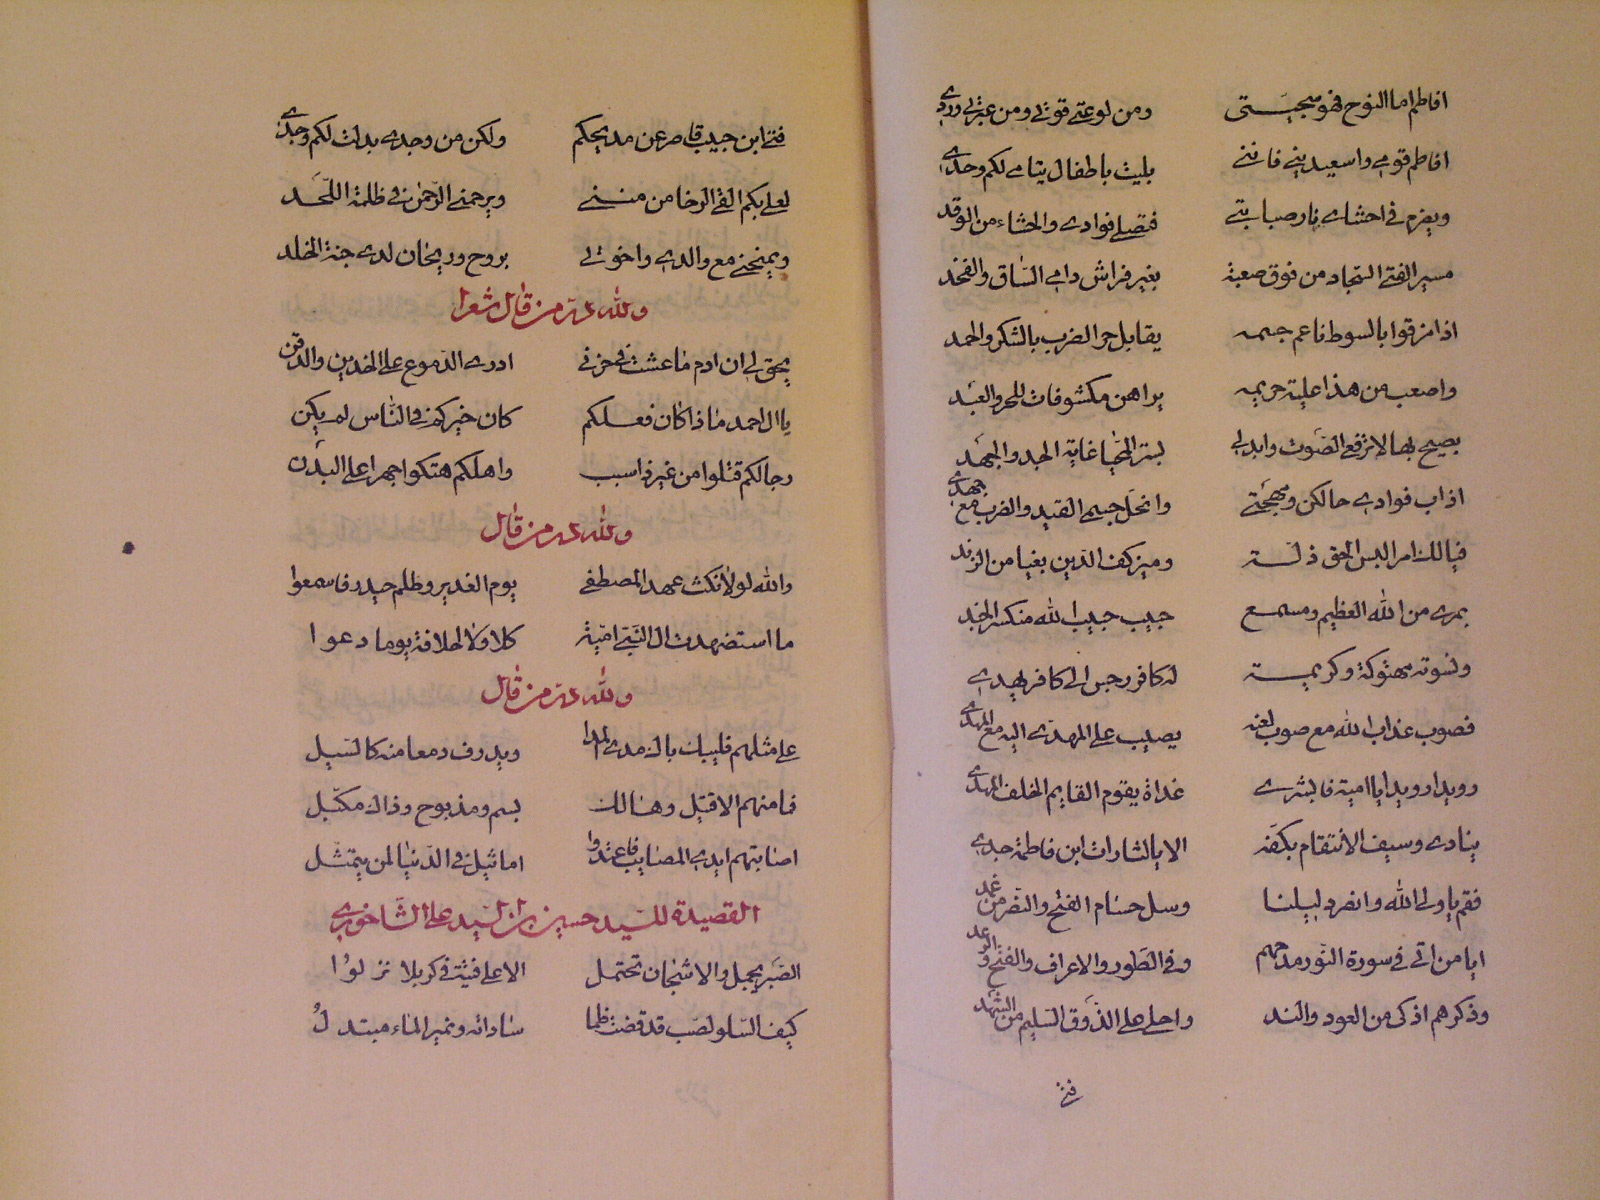 افاطم اما النوح فهو سجيتي ومن لوعتي قوتي ومن عبرتي وردي
افاطم قومي واسعديني فانني بليت باطفال يتامى لكم وحدي
ويضرم في احشاي نار صبابتي فتصلى فوادي والحشاء من الوقد
مسير الفتى السجاد من فوق صعبة بغير فراش دامي الساق والفخذ
اذا مزقوا بالسوط ناعم جسمه يقابل حر الضرب بالشكر والحمد
واصعب من هذا عليه حريمه يراهن مكشوفات للحر والعبد
يصيح بها لا ترفع الصوت وابدلي لستر المحيا غاية الجد والجهد
اذاب فوادي حالكن ومهجتي وانحل جسمي القيد والضرب مع جهدي
فيالك امر البس الحق ذلة وميز كف الدين بغيا من الزند
بمرى من الله العظيم ومسمع حبيب حبيب الله منكسر الخد
ونسوته مهتوكة وكريمه له كافر رجس الى كافر يهدي
فصوب عذاب الله مع صوب لعنه يصيب على المهدى اليه مع المهدي
رويدا رويدا يا امية فابشري غداة يقوم القايم الخلف المهدي
ينادي وسيف الانتقام بكفه الا يالثارات ابن فاطمة جدي
فقم يا ولي الله وانفرد لبيلنا وسل حسام الفتح والنصر من غمد
ايا من اتى في سورة النور مدحهم وفي الطور والاعراف والفتح والرعد
وذكرهم اذكى من العود والند واحلى على الذوق السليم من الشهد
فتى
فتى ابن حبيب قاصر عن مديحكم ولكن من وجدي بدات لكم وجدي
لعلي بكم القى الرخا من منيتي ويرحمني الرحمن في ظلمة اللحد
ويمنحني مع والدي واخوتي بروح وريحان لدى جنة الخلد
ولله در من قال شعرا
يحق لي ان ادم ما عشت في حزني اذري الدموع على الخدين والذقن
يا ال احمد ماذا كان فعلكم كان خيركم في الناس لم يكن
رجالكم قتلوا من غير ذا سبب واهلكم هتكوا جهرا على البدن
ولله در من قال
والله لولا نكث عهد المصطفى يوم الغدير وظلم حيدر فاسمعوا
ما استضهدت ال النبي امية كلا ولا لخلافة يوما دعوا
ولله در من قال
على مثلهم فليبك باك مدى المدا ويذرف دمعا منه كالسيل
فما منهم الا قتيل وهالك بسم ومذبوح وذاك مكبل
اصابتهم ايدي المصايب فاغتدوا اماثيل في الدنيا لمن يتمثل
القصيدة للسيد حسين بن السيد علي الشاخوري
الصبر يجمل والاشجان تحتمل الا على فتية في كربلا نزلوا
كيف السلو لصب قد قضت ظما ساداته ونمير الماء مبتذل